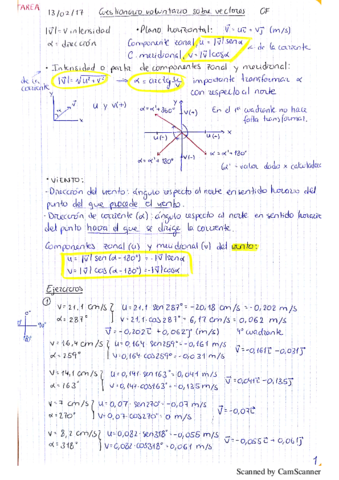 TAREA
13/02/17 Cuestionario voluntario sobre vectores CF
|V| = V intensidad
α = dirección
• Plano horizontal: V = ui + vj (m/s)
Componente zonal u = |V| senα
C. meridional v = |V| cosα
α de la corriente
• Intensidad a partir de componentes zonal y meridional:
de la corriente
|V| = √u² + v²
α = arctg u/v
importante transformar α con respecto al norte
u y v (+)
α = α' + 360°
α = α' + 180°
α = α' + 180°
En el 1er cuadrante no hace falta transformar.
• VIENTO:
- Dirección del viento: ángulo respecto al norte en sentido horario del punto del que procede el viento.
- Dirección de corriente (α): ángulo respecto al norte en sentido horario del punto hacia el que se dirige la corriente.
Componentes zonal (u) y meridional (v) del viento:
u = |V| sen (α - 180°) = - |V| senα
v = |V| cos (α - 180°) = - |V| cosα
Ejercicios
①
v = 21,1 cm/s
α = 287°
u = 21,1 · sen 287° = -20,18 cm/s = -0,202 m/s
v = 21,1 · cos 287° = 6,17 cm/s = 0,062 m/s
V = -0,202i + 0,062j (m/s) 4º cuadrante
v = 16,4 cm/s
α = 259°
u = 0,164 · sen 259° = -0,161 m/s
v = 0,164 cos 259° = -0,031 m/s
V = -0,161i - 0,031j
v = 14,1 cm/s
α = 163°
u = 0,141 · sen 163° = 0,041 m/s
v = 0,141 · cos 163° = -0,135 m/s
V = 0,041i - 0,135j
v = 7 cm/s
α = 270°
u = 0,07 · sen 270° = -0,07 m/s
v = 0,07 · cos 270° = 0 m/s
V = -0,07i
v = 8,2 cm/s
α = 318°
u = 0,082 · sen 318° = -0,055 m/s
v = 0,082 · cos 318° = 0,061 m/s
V = -0,055i + 0,061j
1
Scanned by CamScanner